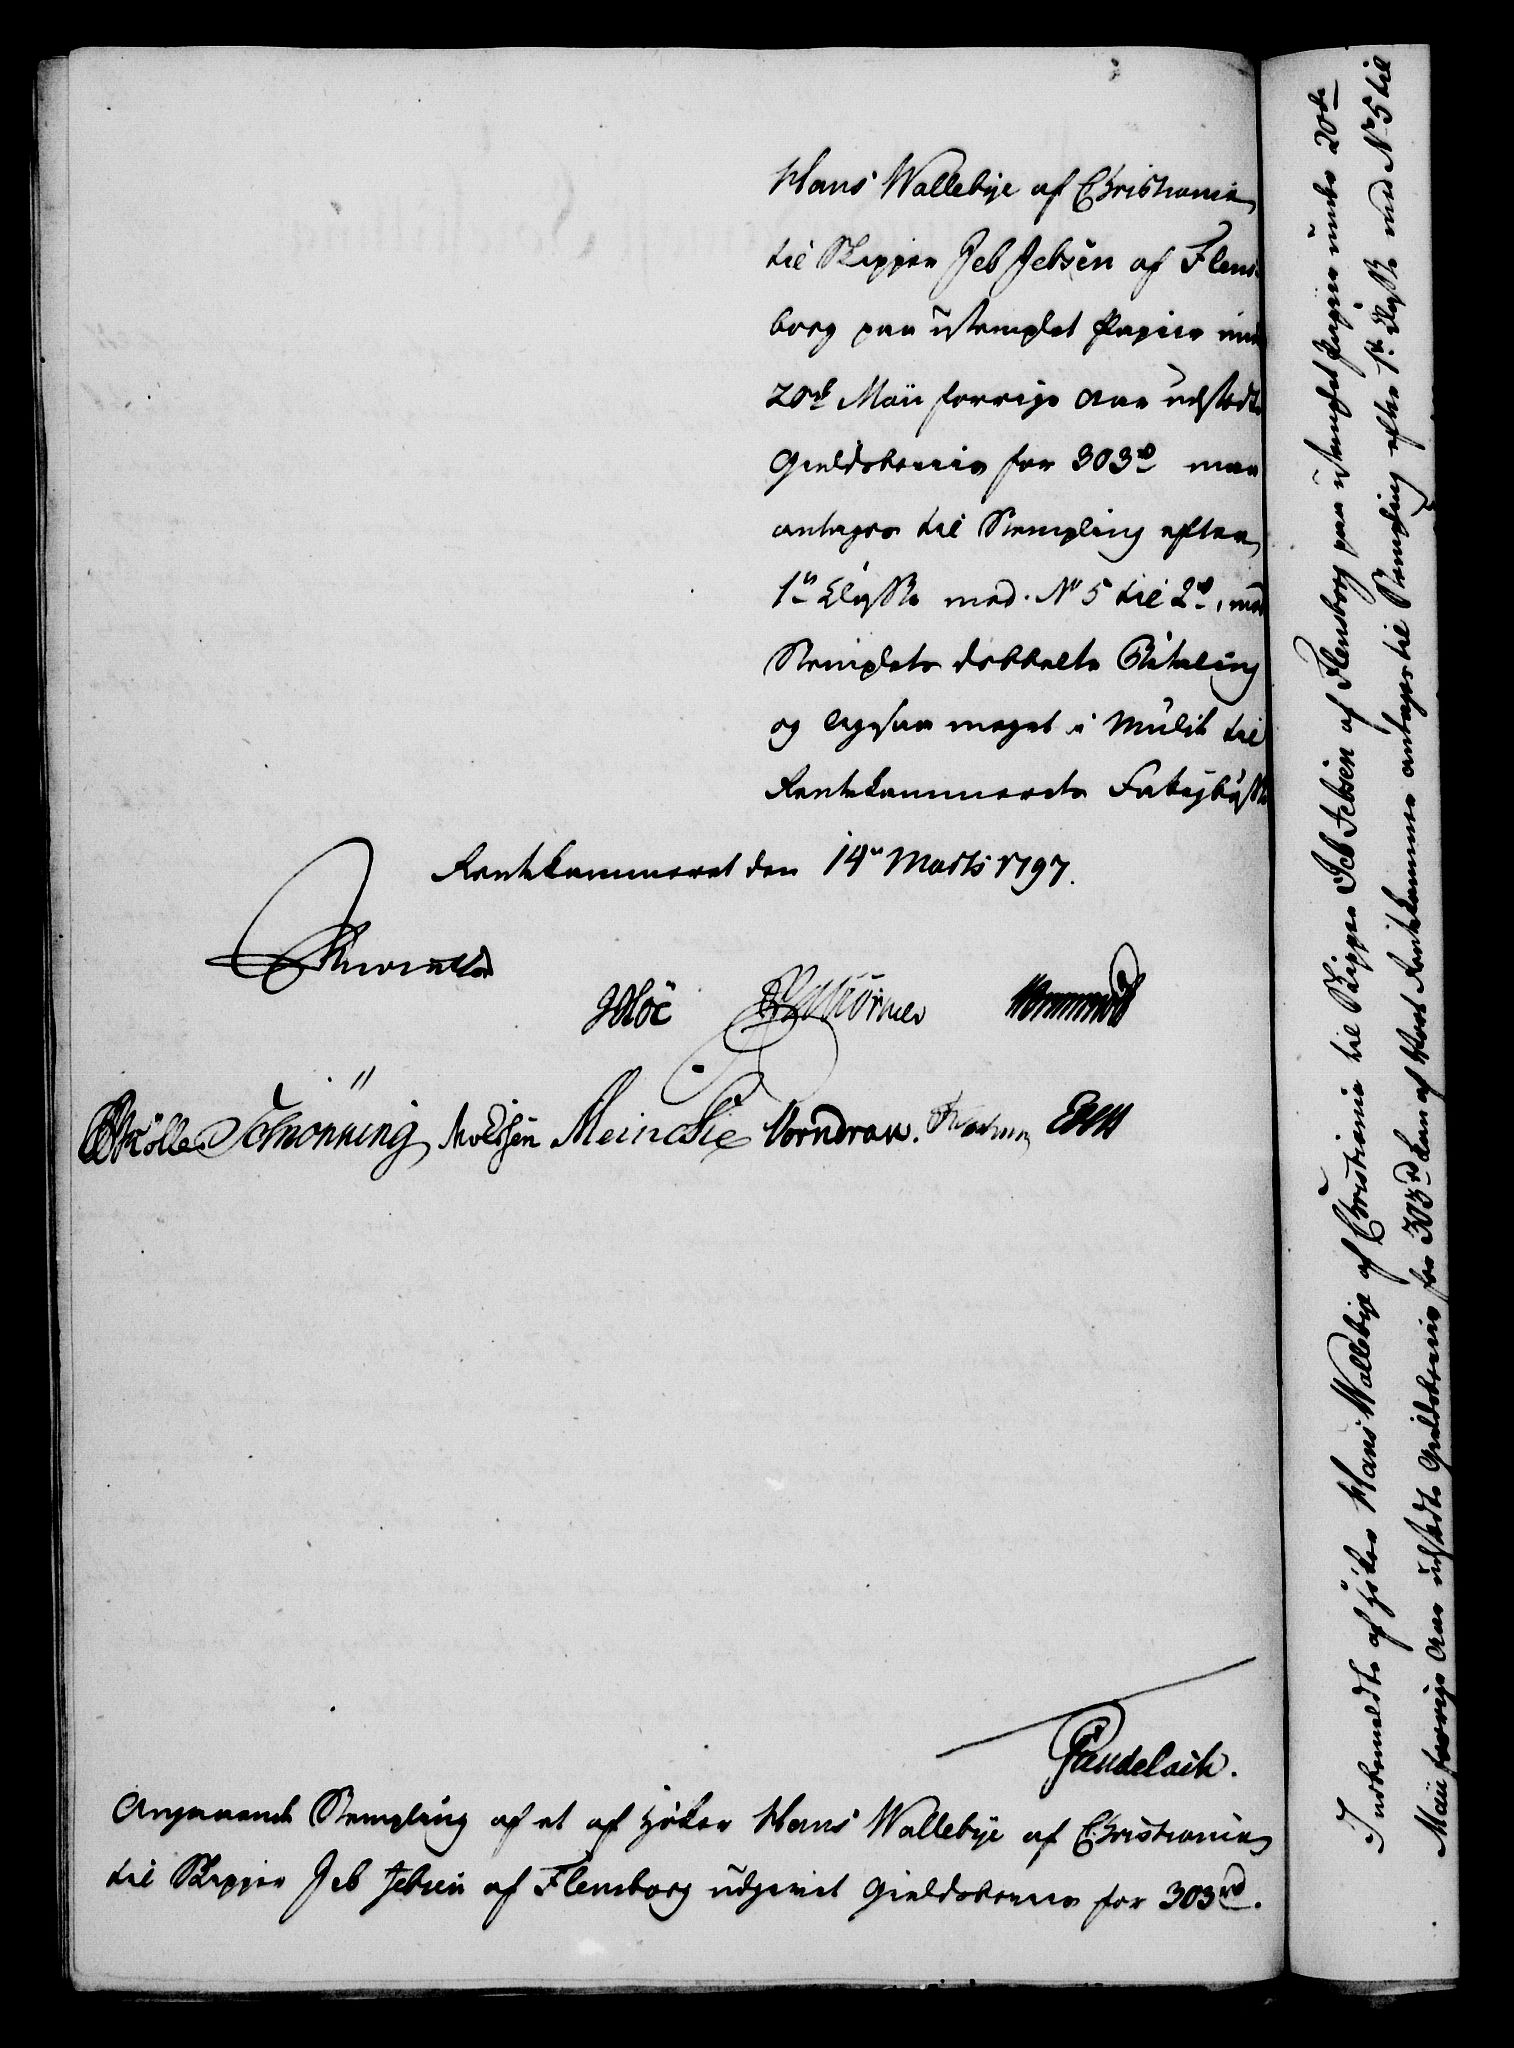 Hans Wallebye af Christiania
til Skipper Jeb Jebsen af Flens-
borg paa ustemplet Papiir
20de Maii forrige Aar udstedte
Gieldsbeviis for 303 rd maa
antages til Stempling efter
1ste Classe med No 5 til 2 rd, med
Stemplets dobbelte Betaling
og ligesaa meget i Mulct til
Rentekammerets Fattigbøsse
Rentekammeret den 14de Marts 1797.
Hoë
Schönning Meincke Vorndran.
Angaaende Stempling af et af Høker Hans Wallebye af Christiania
til Skipper Jeb Jebsen af Flensborg udgivet Gieldsbeviis for 303 rd.
Indbemeldte af Høker Hans Wallebye af Christiania til Skipper Jeb Jebsen af Flensborg paa ustemplet Papiir under 20de
Maii forrige Aar udstedte Gieldsbeviis for 303 rd kan af Rentekammer antages til Stempling efter 1ste Classe med No 5 til